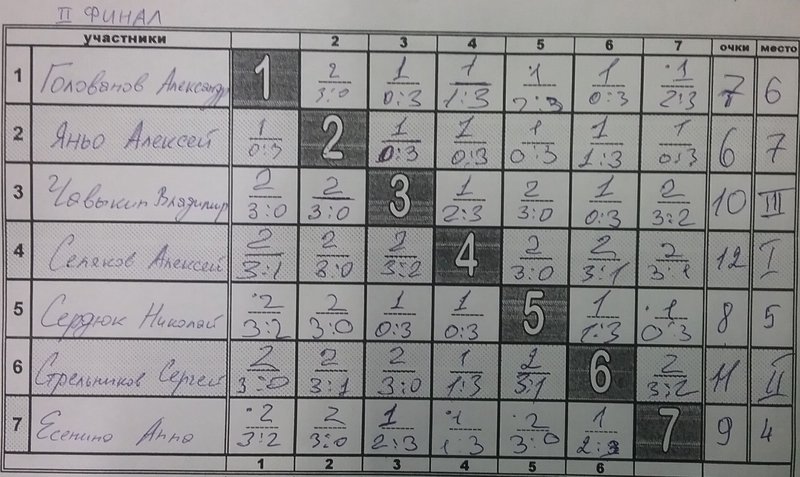 II ФИНАЛ
участники 2 3 4 5 6 7 очки место
1 Голованов Александр 1 2 3:0 1 0:3 1 1:3 1 2:3 1 0:3 1 2:3 7 6
2 Яньо Алексей 1 0:3 2 1 0:3 1 0:3 1 0:3 1 1:3 1 0:3 6 7
3 Чавыкин Владимир 2 3:0 2 3:0 3 1 2:3 2 3:0 1 0:3 2 3:2 10 III
4 Селяков Алексей 2 3:1 2 3:0 2 3:2 4 2 3:0 2 3:1 2 3:1 12 I
5 Сердюк Николай 2 3:2 2 3:0 1 0:3 1 0:3 5 1 1:3 1 0:3 8 5
6 Стрельников Сергей 2 3:0 2 3:1 2 3:0 1 1:3 2 3:1 6 2 3:2 11 II
7 Есенина Анна 2 3:2 2 3:0 1 2:3 1 1:3 2 3:0 1 2:3 7 9 4
1 2 3 4 5 6